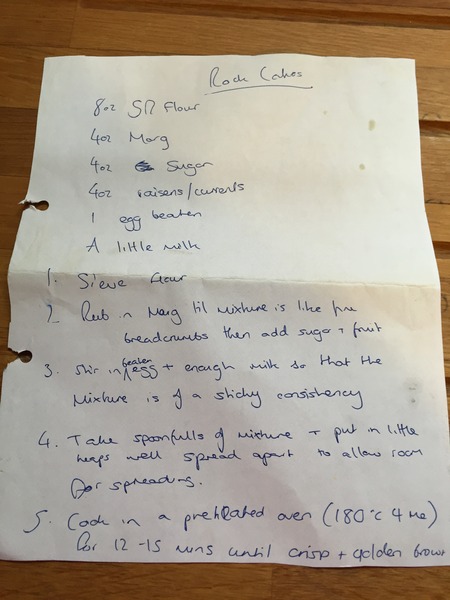 Rock Cakes
8oz SR Flour
4oz Marg
4oz Sugar
4oz raisens/currents
1 egg beaten
A little milk
1. Sieve flour
2 Rub in Marg til mixture is like fine
breadcrumbs then add sugar + fruit
3. Stir in beaten egg + enough milk so that the
mixture is of a sticky consistency
4. Take spoonfulls of mixture + put in little
heaps well spread apart to allow room
for spreading.
5. Cook in a preheated oven (180°c 4
for 12-15 mins until crisp + golden brown